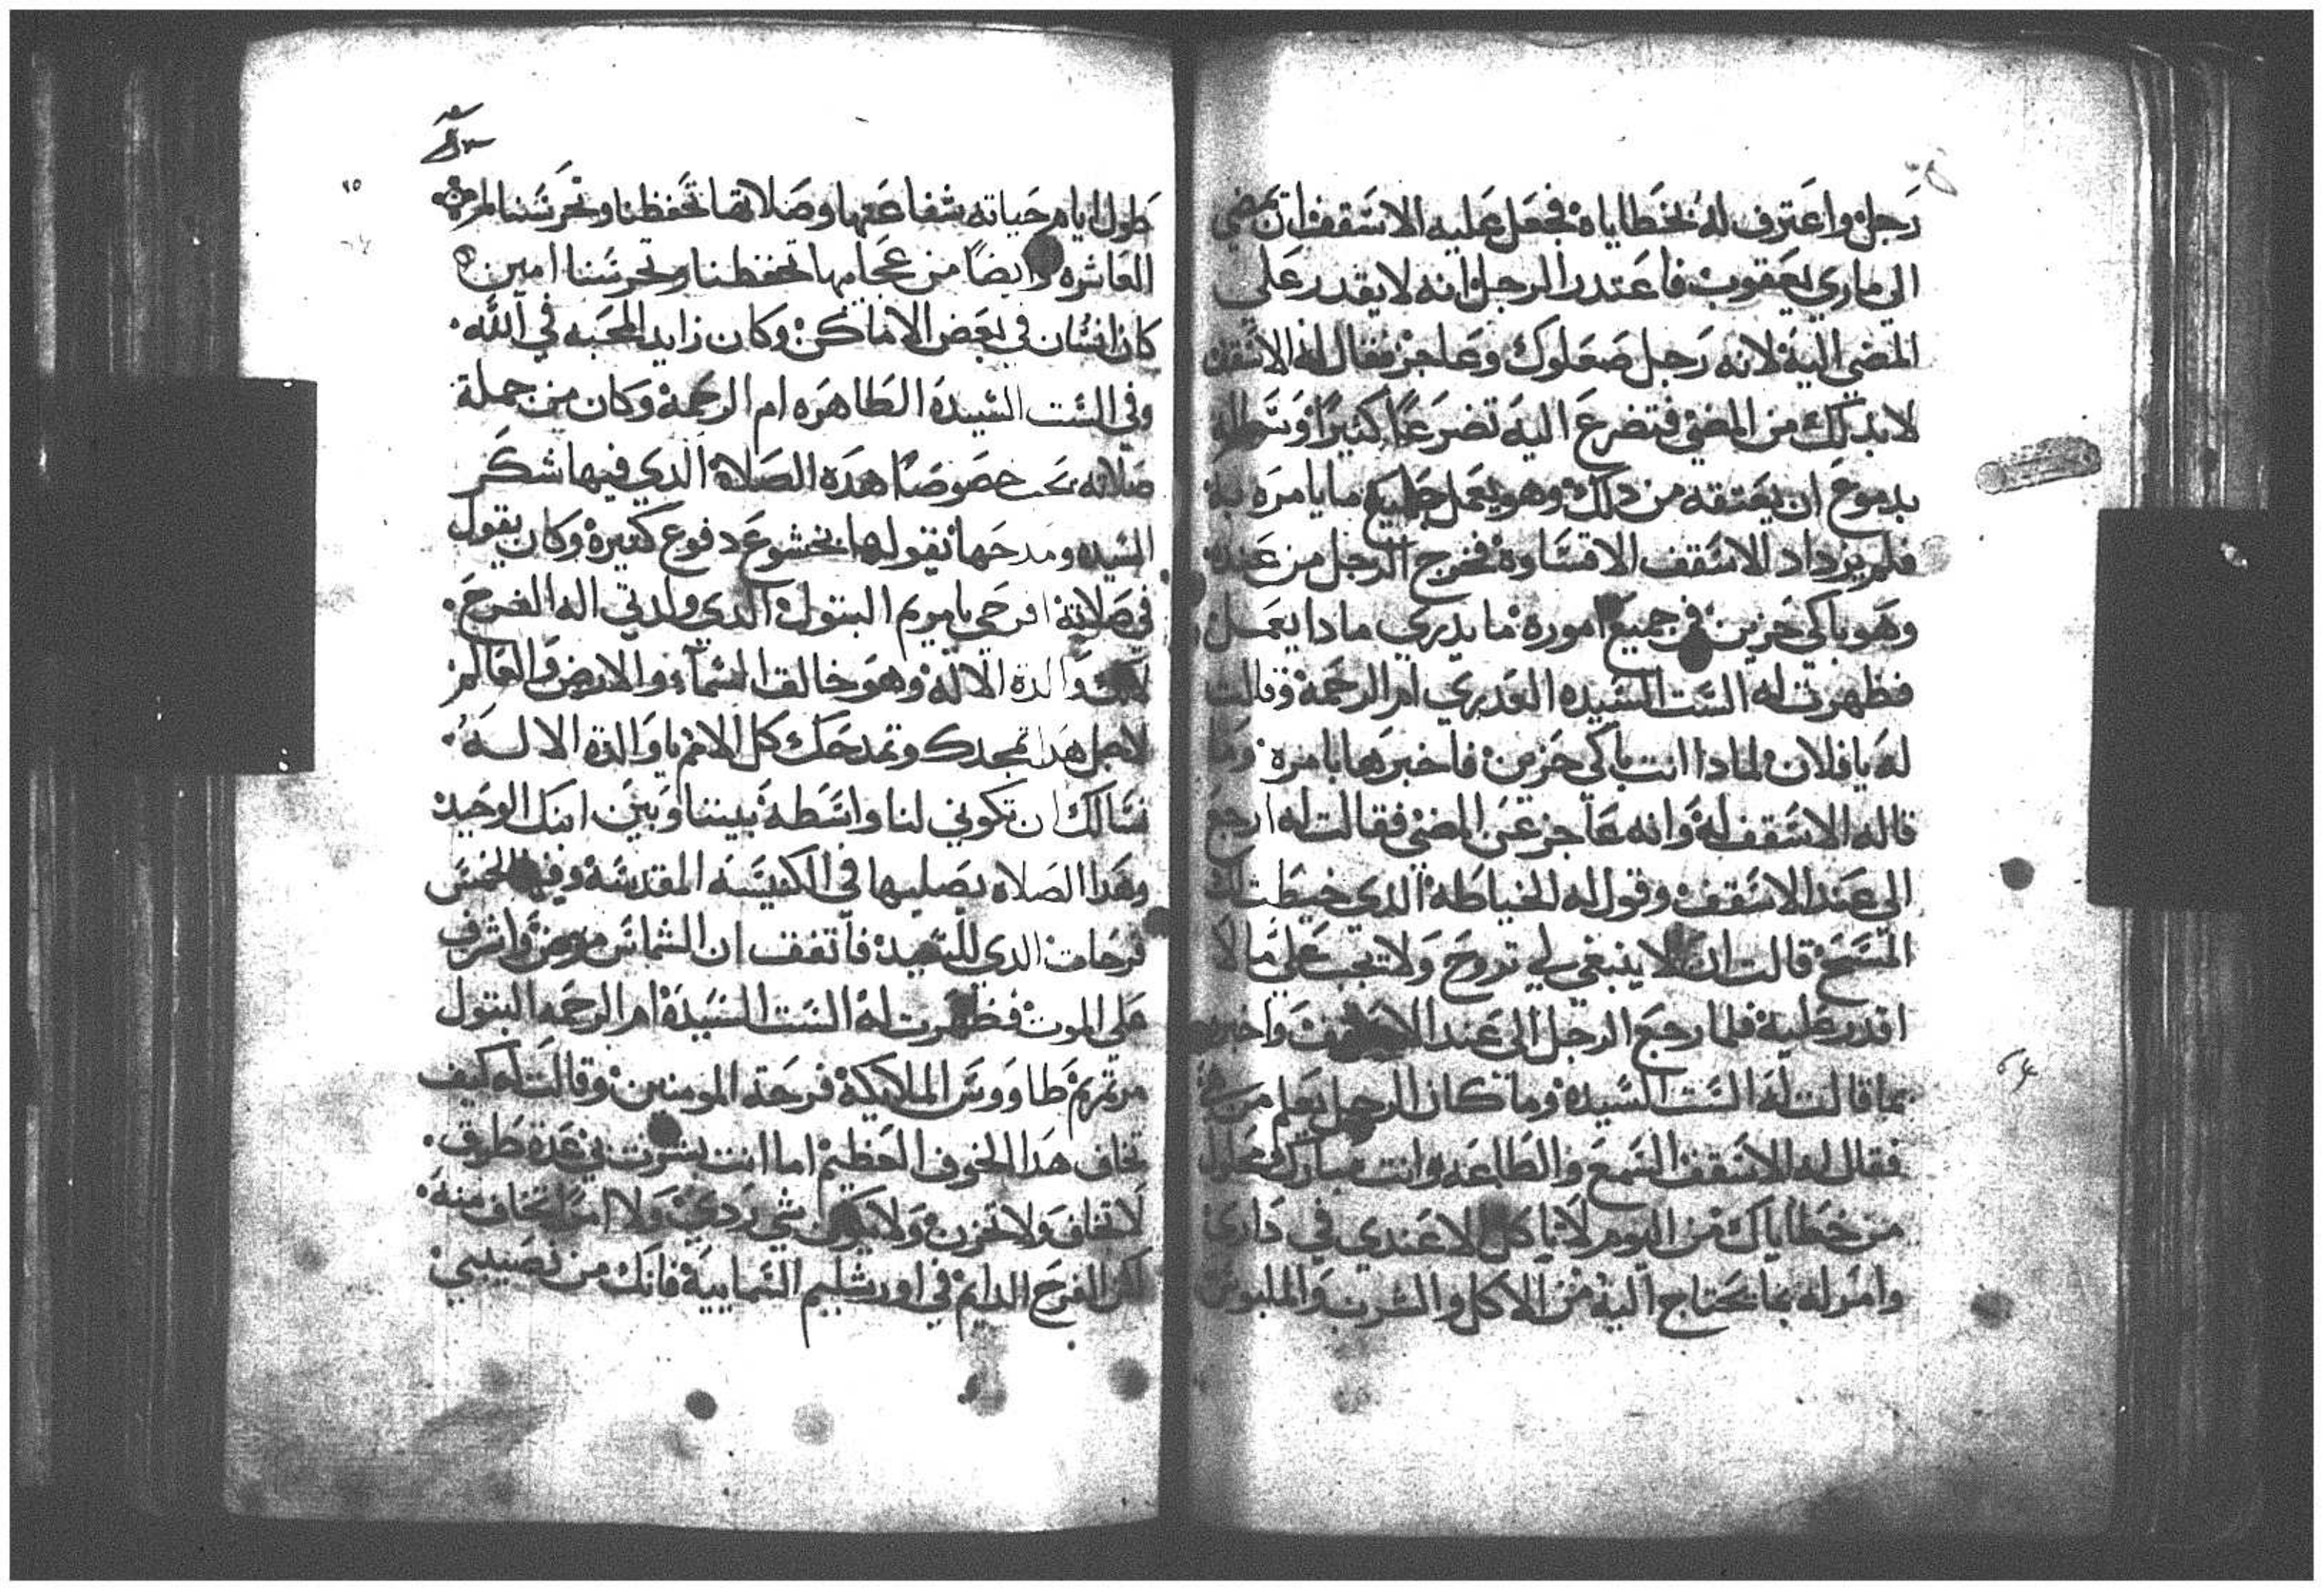 رجل واعترف له بخطاياه فجعل عليه الاسقف ان يمضي
الي ماري يعقوب فاعتدر الرجل انه لا يقدر علي
المضي اليه لانه رجل صعلوك وعاجز فقال له الاسقف
لابد لك من المضي فتضرع اليه تضرعًا كثيرًا
بدموع ان يعتقه من دلك وهو يعمل جميع ما يامره به
فلم يزداد الاسقف الا قساوة فخرج الرجل من عنده
وهو باكي حزين في جميع اموره ما يدري مادا يعمل
فظهرت له الست السيده العدري ام الرحمة وقالت
له يا فلان لمادا انت باكي حزين فاخبرها بامره وما
قاله الاسقف له وانه عاجز عن المضي فقالت له ارجع
الي عند الاسقف وقول له الخياطه الدي خيطت لك
المسح قالت ان لا ينبغي لي تروح ولا تجب علي ما لا
اقدر عليه فلما رجع الرجل الي عند الاسقف واخبره
بما قالت له الست السيده وما كان الرجل يعلم من هي
فقال له الاسقف السمع والطاعه وانت مبارك محلول
من خطاياك من اليوم لا تاكل الا عندي في داري
وامر له بما يحتاج اليه من الاكل والشرب والملبوس
طول ايام حياته شفاعتها وصلاتها تحفظنا وتحرسنا المره
العاشره وايضًا من عجايبها تحفظنا وتحرسنا امين
كان انسان في بعض الاماكن وكان زايد المحبه في الله
وفي الست السيدة الطاهره ام الرحمة وكان من جملة
صلاته يحب خصوصًا هده الصلاة الدي فيها شكر
السيده ومدحها يقولها بخشوع دفوع كثيرة وكان يقول
في صلاته افرحي يا مريم البتول الدي ولدتي اله الفرح
لانك والدة الاله وهو خالق السماء والارض والعالم
لاجل هدا تمجدك وتمدحك كل الامم يا والدة الاله
نسالك ان تكوني لنا واسطة بيننا وبين ابنك الوحيد
وهدا الصلاه يصليها في الكنيسه المقدسه وفيها الخمس
فرحات الدي للسيده فاتفق ان الشماس مرض واشرف
علي الموت فظهرت له الست السيدة ام الرحمه البتول
مرتمريم طاووس الملايكة فرحة المومنين وقالت له كيف
تخاف هدا الخوف العظيم اما انت بشرتني عدة طرق
لا تخاف ولا تحزن ولا يكون شي ردي ولا امرًا تخاف منه
لكن الفرح الدايم في اورشليم السماييه فانك من نصيبي